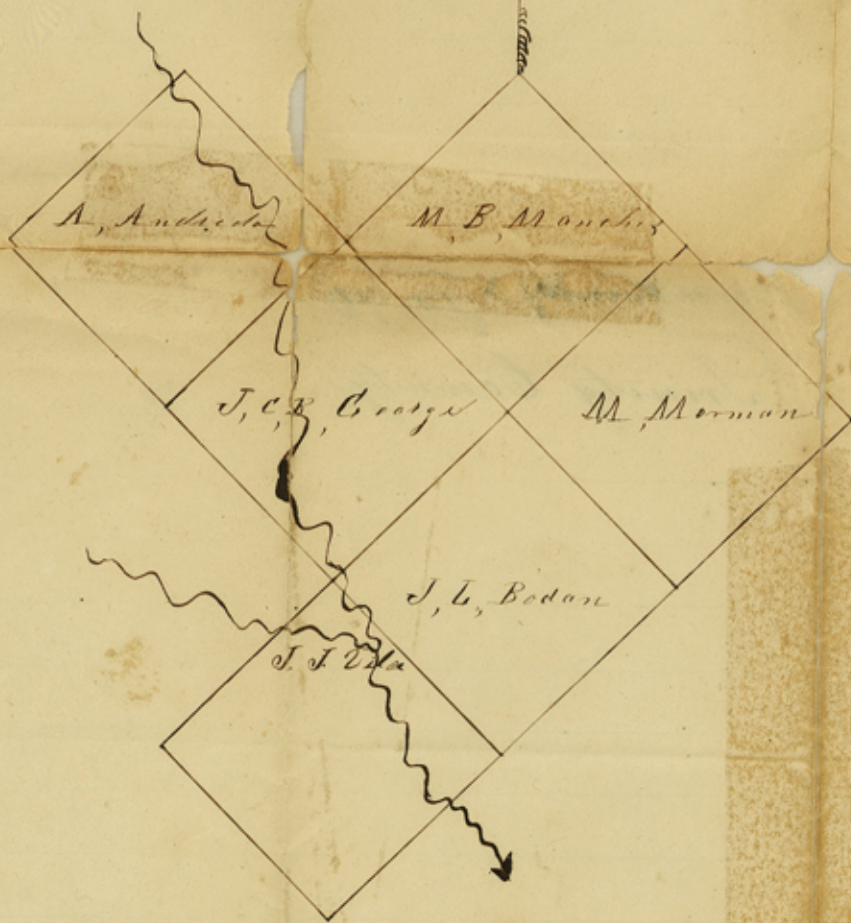 A, Andrada
M, B, Manchis
J, C, R, George
M, Morman
J, L, Bodan
J. J.